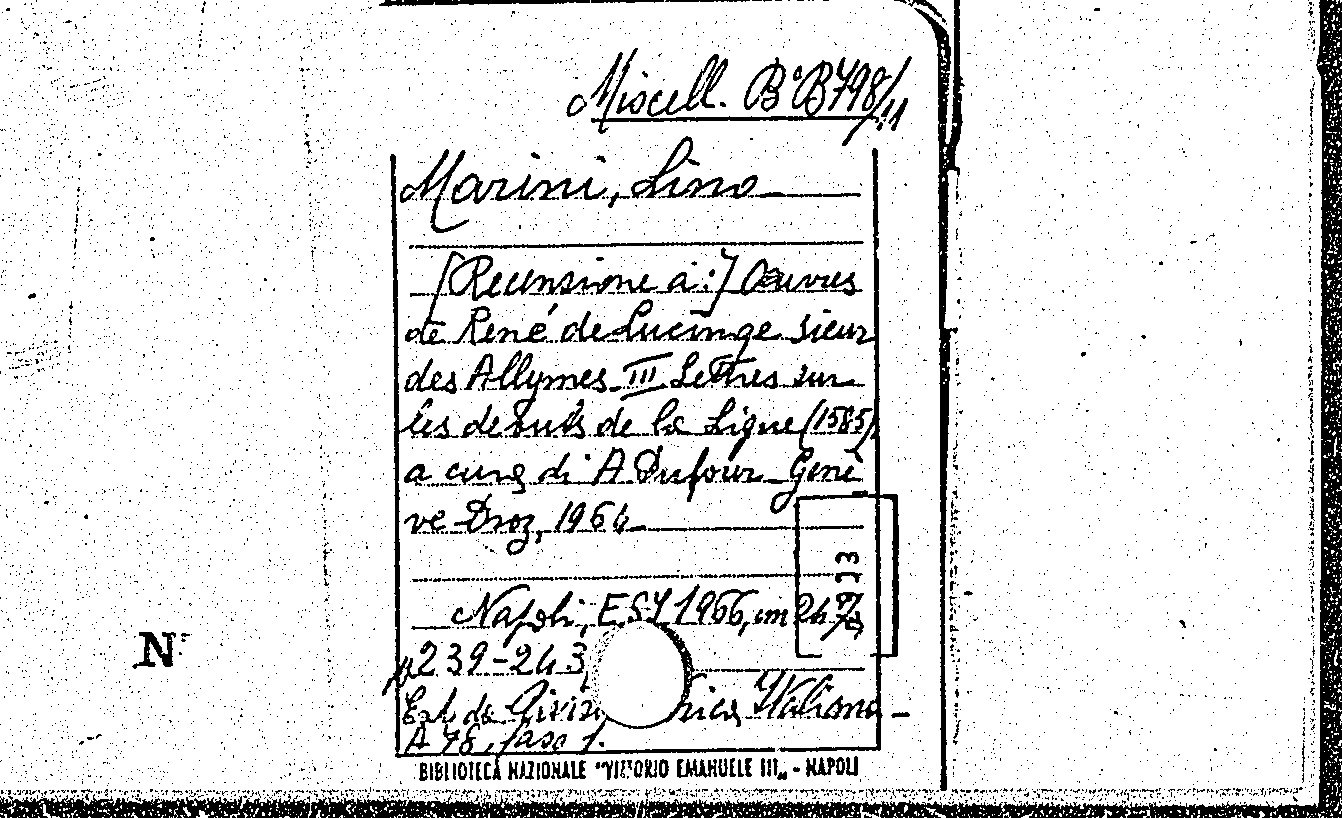 Miscell. B°B798/11
Marini, Lino
[Recensione a:] Œuvres
de René de Lucinge sieur
des Allymes III Lettres sur
les debuts de la Ligue (1585)
a cura di A Dufour Genè
ve Droz, 1964
Napoli, ESI 1966, in
p 239-243
Est. da Italiana
A 78, fasc 1.
BIBLIOTECA NAZIONALE "VITTORIO EMANUELE III„ - NAPOLI
N°